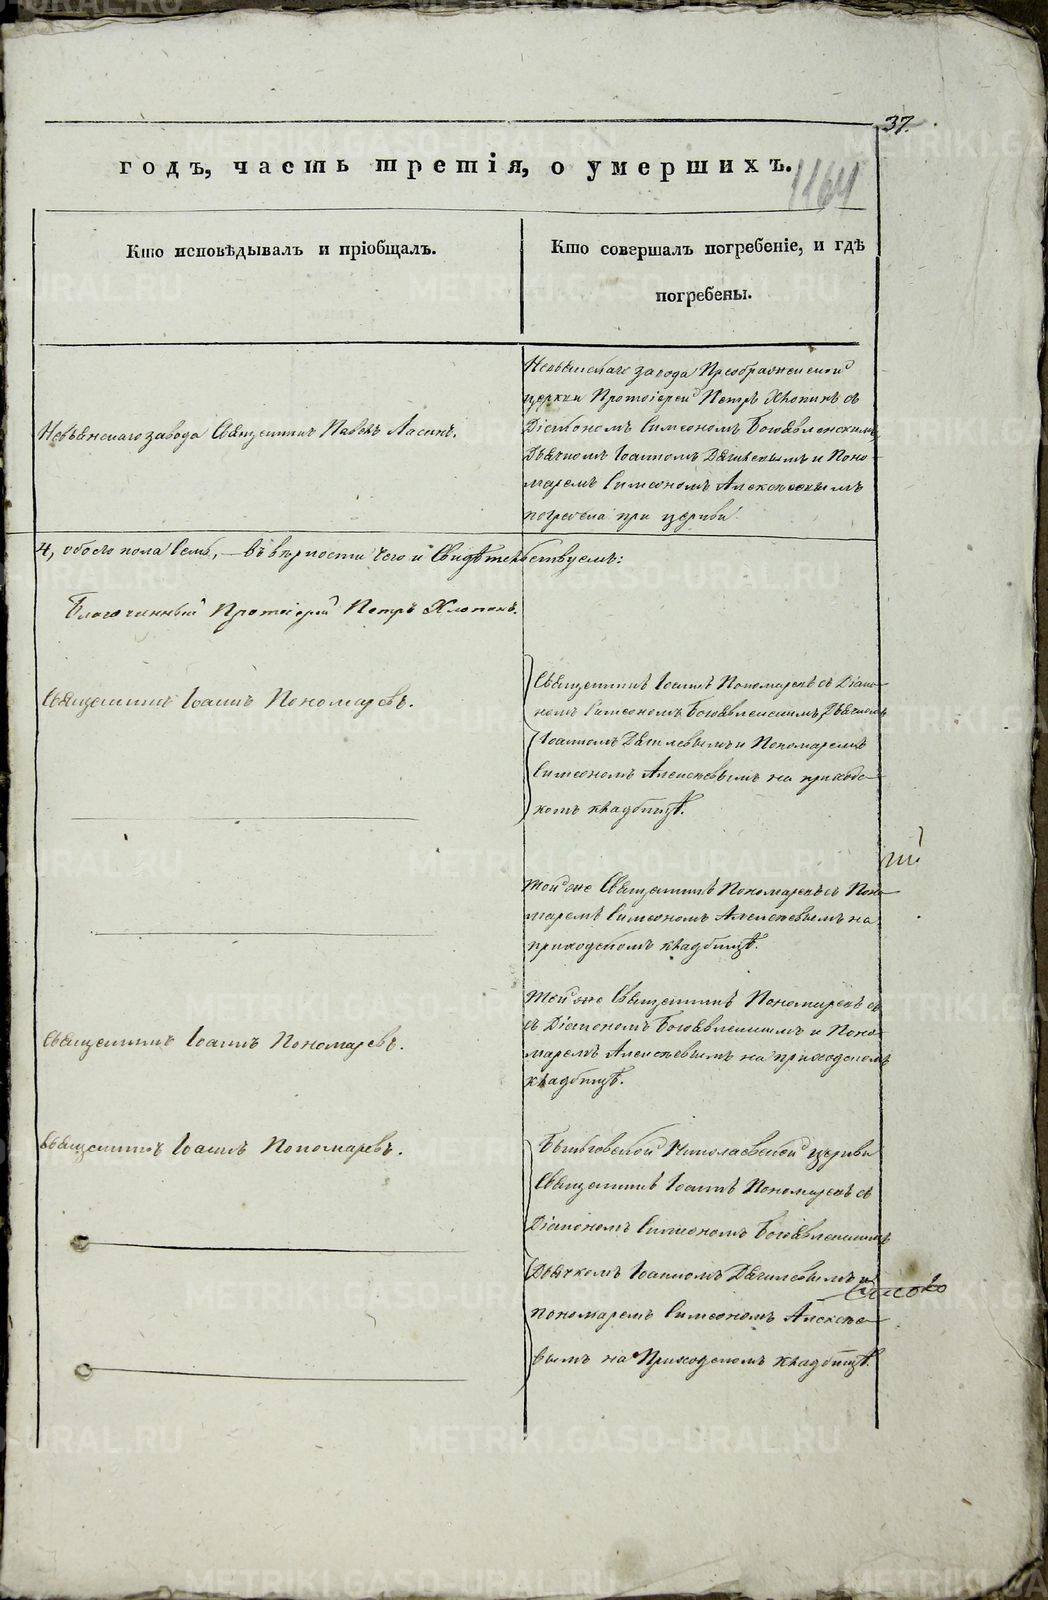 37.
годъ, часть третія, о умершихъ.
1164
Кто исповѣдывалъ и пріобщалъ.
Кто совершалъ погребеніе, и гдѣ
погребены.
Невьянскаго завода Священникъ Павелъ
Невьянскаго завода Преображенской
церкви Протоіерей Петръ Хлопинъ съ
Діакономъ Симеономъ Богоявленскимъ
Дьячкомъ Іоанномъ Дягилевымъ и Поно-
маремъ Симеономъ Алексѣевымъ
погребена при церкви
4, обоего пола Семь, — въ вѣрности чего и Свидѣтельствуемъ:
Благочинный Протоіерей Петръ Хлопинъ.
Священникъ Іоаннъ Пономаревъ.
Священникъ Іоаннъ Пономаревъ съ Діако-
номъ Симеономъ Богоявленскимъ, Дьячкомъ
Іоанномъ Дягилевымъ и Пономаремъ
Симеономъ Алексѣевымъ на приходс-
комъ кладбищѣ.
Той же Священникъ Пономаревъ съ Поно-
маремъ Симеономъ Алексѣевымъ на
приходскомъ кладбищѣ.
Священникъ Іоаннъ Пономаревъ.
Той же Священникъ Пономаревъ съ
съ Діакономъ Богоявленскимъ и Поно-
маремъ Алексѣевымъ на приходскомъ
кладбищѣ.
Священникъ Іоаннъ Пономаревъ.
Николаевской церкви
Священникъ Іоаннъ Пономаревъ съ
Діакономъ Симеономъ Богоявленскимъ
Дьячкомъ Іоанномъ Дягилевымъ и
пономаремъ Симеономъ Алексѣе-
вымъ на Приходскомъ кладбищѣ.
METRIKI.GASO-URAL.RU